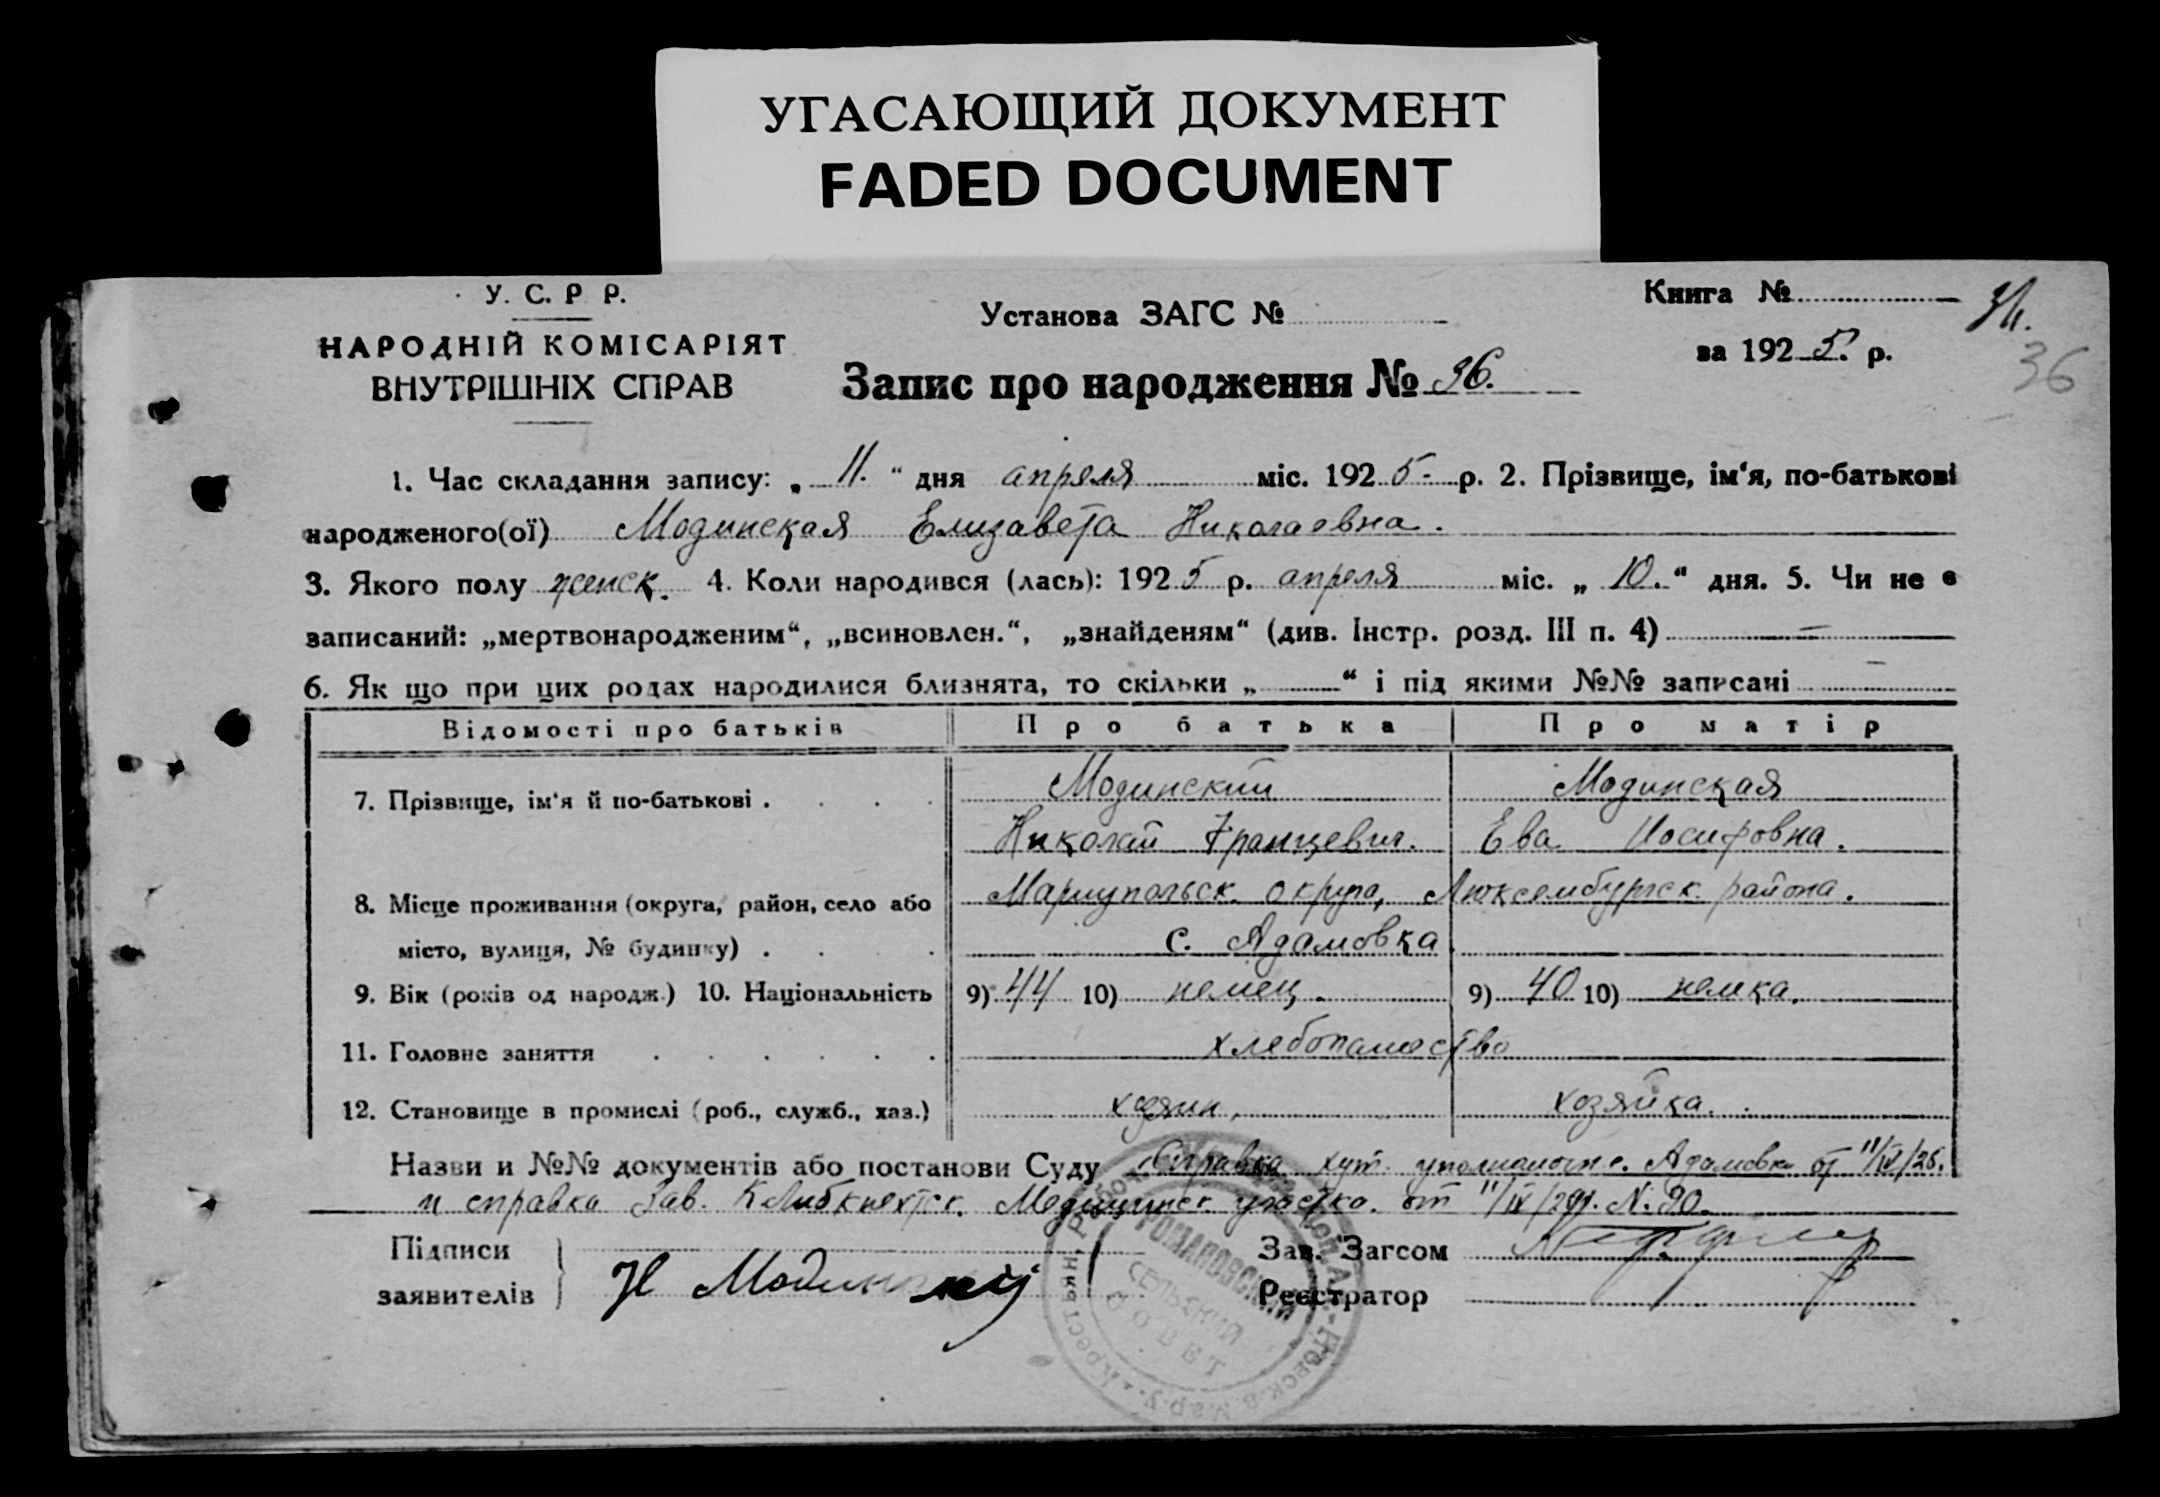 УГАСАЮЩИЙ ДОКУМЕНТ
FADED DOCUMENT
У. С. Р Р.
НАРОДНІЙ КОМІСАРІЯТ
ВНУТРІШНІХ СПРАВ
Установа ЗАГС №
Запис про народження № 36.
Книга №
за 1925. р.
36
1. Час складання запису: „ 11. “ дня апреля міс. 1925 р. 2. Прізвище, ім‘я, по-батькові
народженого(ої) Модинская Елизавета Николаевна.
3. Якого полу женск. 4. Коли народився (лась): 1925 р. апреля міс. „ 10. “ дня. 5. Чи не є
записаний: „мертвонародженим“, „всиновлен.“, „знайденям“ (див. Інстр. розд. III п. 4) —
6. Як що при цих родах народилися близнята, то скільки „ “ і під якими №№ записані —
Відомості про батьків Про батька Про матір
7. Прізвище, ім‘я й по-батькові . Модинский Модинская
Николай Францевич. Ева Иосифовна.
8. Місце проживання (округа, район, село або Мариупольск. округа, Люксембургск. района.
місто, вулиця, № будинку) . с. Адамовка.
9. Вік (років од народж.) 10. Національність 9) 44 10) немец. 9) 40 10) немка.
11. Головне заняття хлебопашество
12. Становище в промислі (роб., служб., хаз.) хозяин, хозяйка.
Назви и №№ документів або постанови Суду Справка хут. уполномоч с. Адамовк от 11/IV/25.
и справка Зав. К Либкнехтск. Медицинск участка. от 11/IV/25г. N. 20.
Підписи
заявителів
Н Модинский
Зав. Загсом
Реєстратор
РОМАНОВСКИЙ
СЕЛЬСКИЙ
СОВЕТ